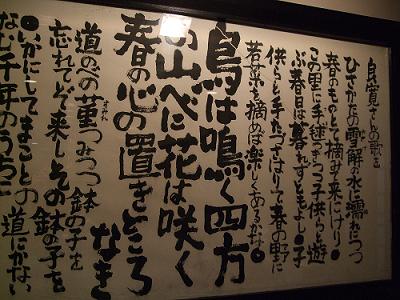 良寛さんの歌を
ひさかたの雪解の水に濡れにつつ
春のものとて摘みて来にけり●
この里に手毬つきつつ子供らと遊
ぶ春日は暮れずともよし●子
供らと手たづさはりて春の野に
若菜を摘めば楽しくあるかな●
鳥は鳴く四方
の山べに花は咲く
春の心の置きどころ
なき
道のべの菫つみつつ鉢の子を
忘れてぞ来しその鉢の子を
●いかにしてまことの道にかない
なむ千年のうちに